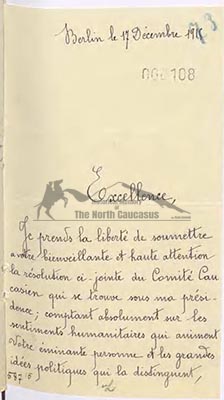 Berlin le 17 Décembre 191
000108
Excellence,
The North Caucasus
Je prends la liberté de soumettre
a votre bienveillante et haute attention
la résolution ci-jointe du Comité Cau
casien qui se trouve sous ma prési-
dence; comptant absolument sur les
sentiments humanitaires qui animent
Votre éminante personne et les grandes
idées politiques qui la distinguent,